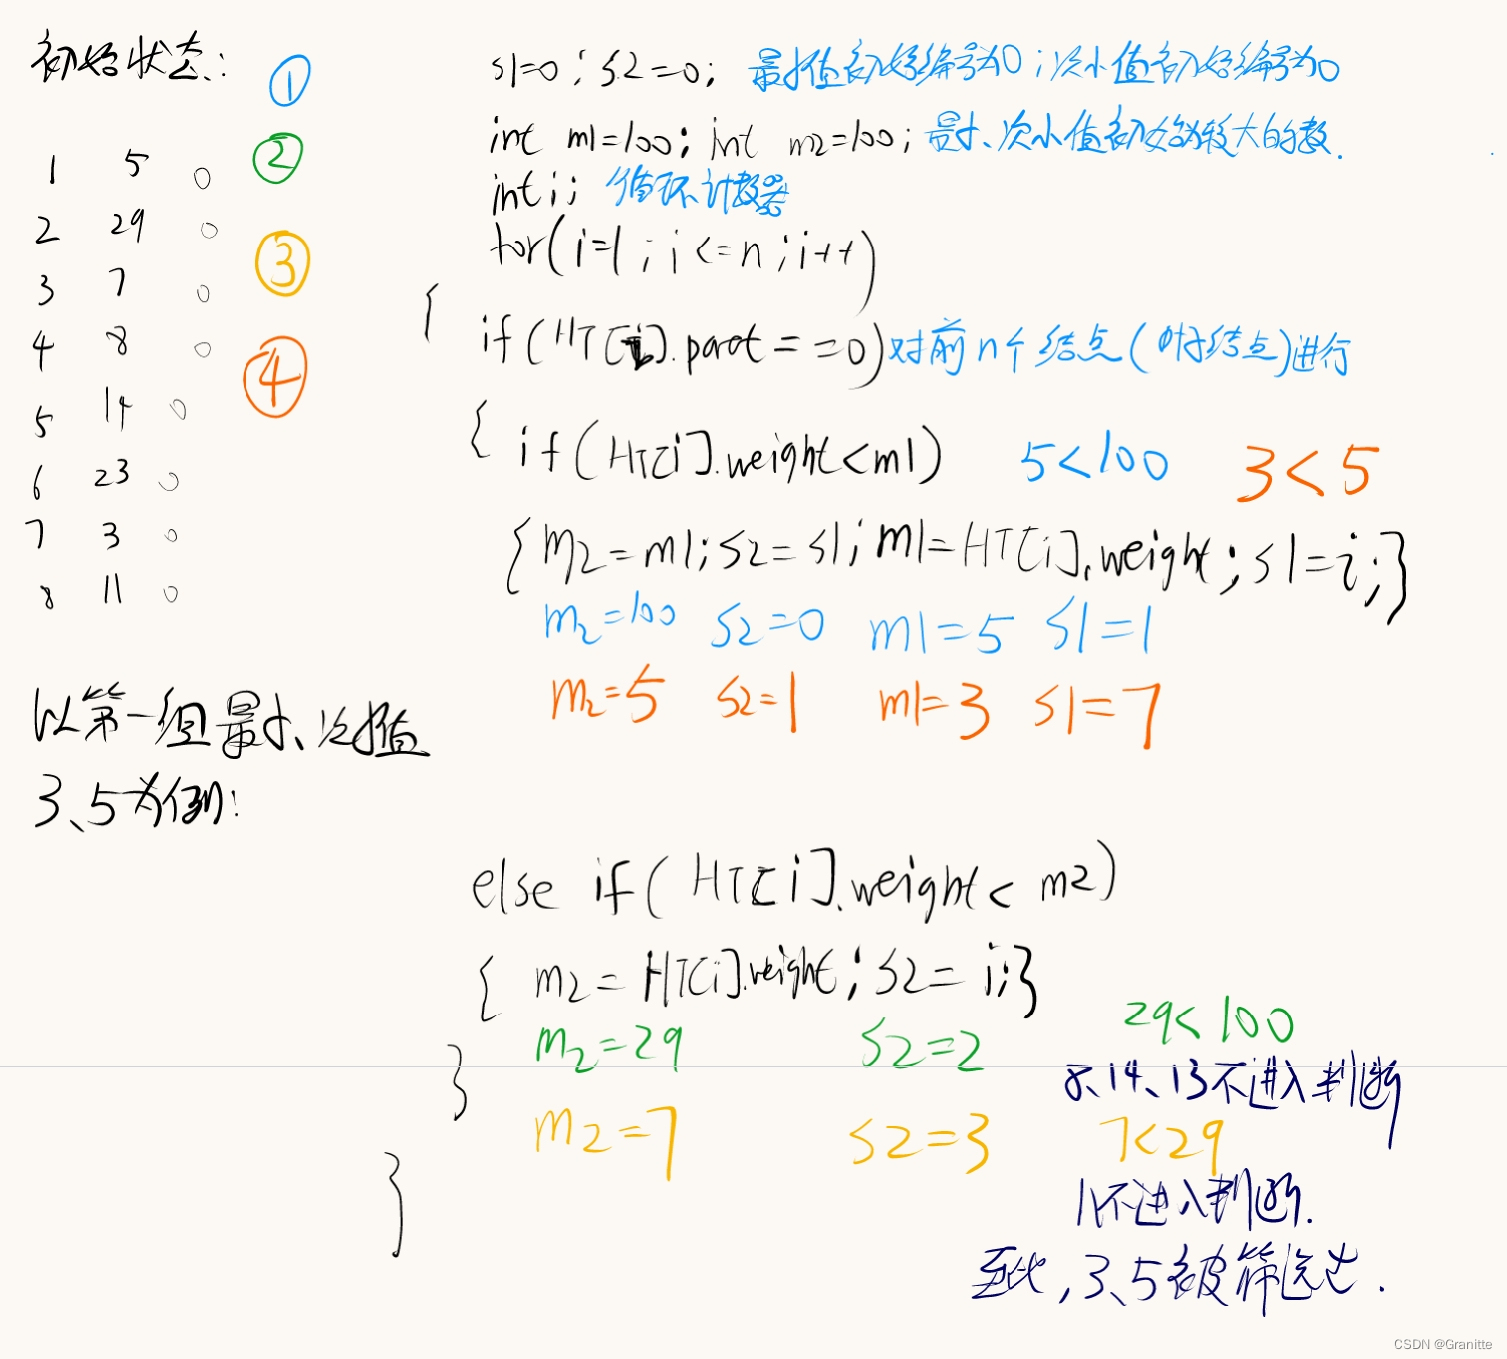 初始状态:
①
1 5 0 ②
2 29 0
3 7 0 ③
4 8 0 ④
5 14 0
6 23 0
7 3 0
8 11 0
以第一组最小、次小值
3、5为例:
s1=0; s2=0; 最小值初始编号为0;次小值初始编号为0
int m1=100; int m2=100; 最小、次小值初始为较大的数.
int i; 循环计数器
for(i=1;i<=n;i++)
{
if(HT[i].parent==0)对前n个结点(叶子结点)进行
{ if(HT[i].weight<m1) 5<100 3<5
{m2=m1;s2=s1;m1=HT[i].weight;s1=i;}
m2=100 s2=0 m1=5 s1=1
m2=5 s2=1 m1=3 s1=7
else if(HT[i].weight< m2)
{ m2=HT[i].weight;s2=i;}
m2=29 s2=2 29<100
} 8、14、13不进入判断
m2=7 s2=3 7<29
}
11不进入判断.
至此,3、5被筛选出.
CSDN @Granitte